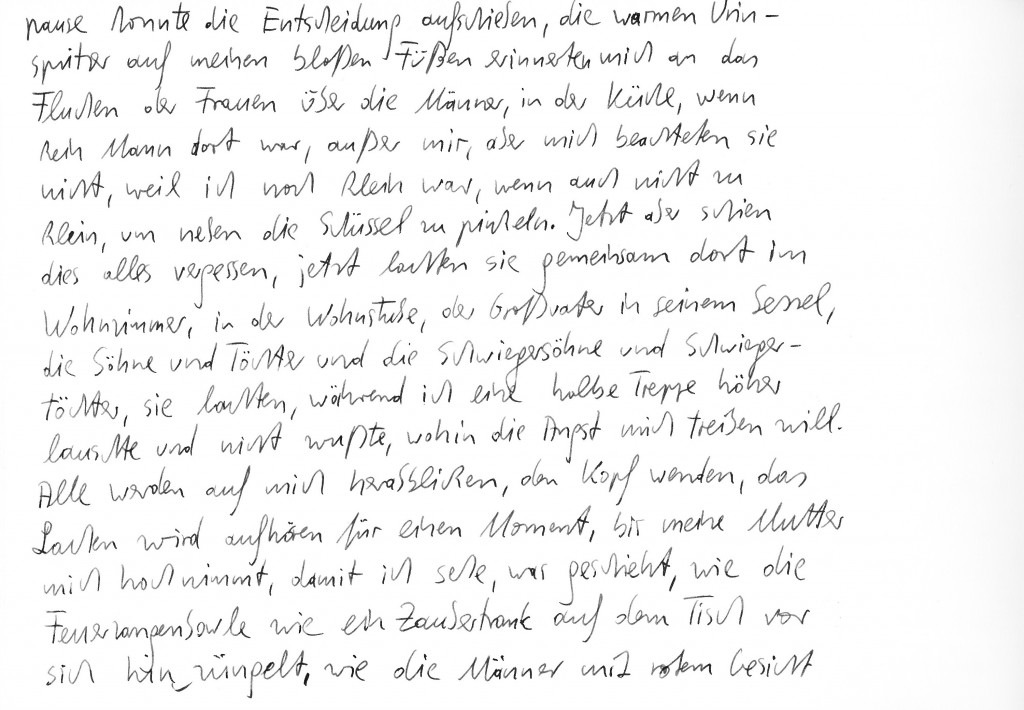 pause konnte die Entscheidung aufschieben, die warmen Urin-
spritzer auf meinen bloßen Füßen erinnerten mich an das
Fluchen der Frauen über die Männer, in der Küche, wenn
kein Mann dort war, außer mir, aber mich beachteten sie
nicht, weil ich noch klein war, wenn auch nicht zu
klein, um neben die Schüssel zu pinkeln. Jetzt aber schien
dies alles vergessen, jetzt lachten sie gemeinsam dort im
Wohnzimmer, in der Wohnstube, der Großvater in seinem Sessel,
die Söhne und Töchter und die Schwiegersöhne und Schwieger-
töchter, sie lachten, während ich eine halbe Treppe höher
lauschte und nicht wußte, wohin die Angst mich treiben will.
Alle werden auf mich herabblicken, den Kopf wenden, das
Lachen wird aufhören für einen Moment, bis meine Mutter
mich hochnimmt, damit ich sehe, was geschieht, wie die
Feuerzangenbowle wie ein Zaubertrank auf dem Tisch vor
sich hin züngelt, wie die Männer mit rotem Gesicht